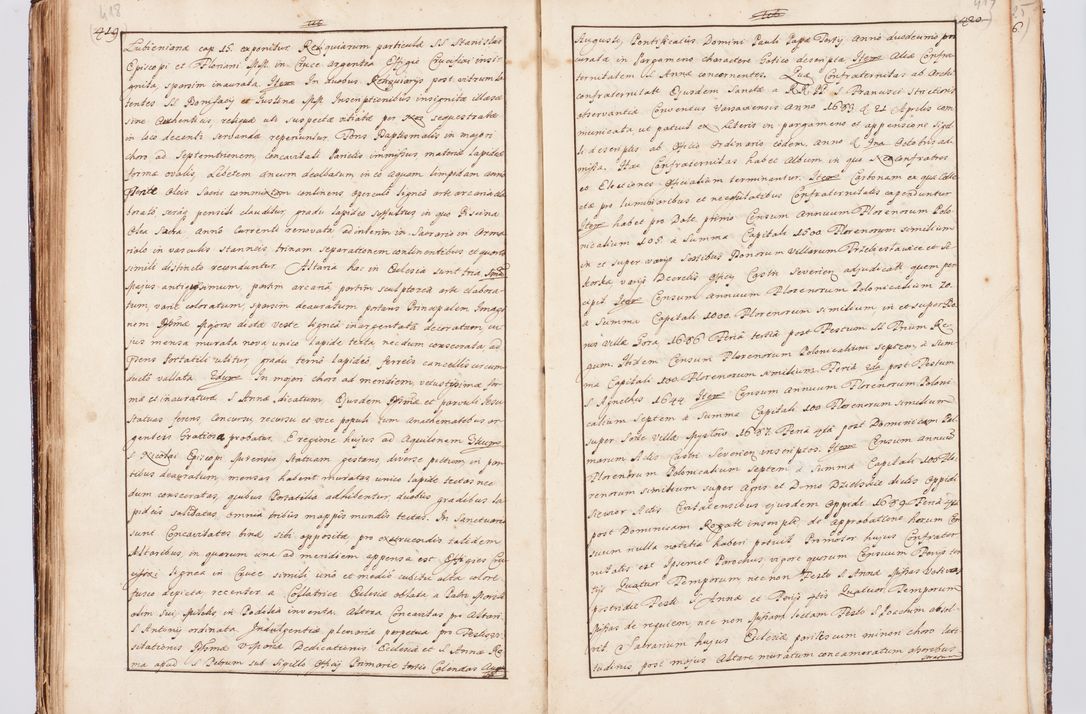 418
419
Lubieniana cap 15. exponitur. Reliquiarum particula SS Stanislai
Episcopi et Floriani Mm. in Cruce argentea Effigie Crucifixi insi
gnita, sparsim inaurata. Item In duobus Reliquiarijs post vitrum la
tentes SS Bonifacij et Justina Mm Inscriptionibus insignitæ illæsæ
sive Authentius reliquæ uti suspectæ vitiatæ per sequestratæ
in loco decenti servanda reperiuntur. Fons Baptismalis in majori
choro ad Septemtrionem, Concavitati Parietis immissus materiæ lapideæ
formæ ovalis, Lebetem æneum dealbatum in eo aquam limpidam anni
Oleis Sacris commixtam continens, operculo ligneo arte arcuaria ela
borato, serâq pensili clauditur, gradu lapideo suffultus in quo Piscina
Olea Sacra anno currenti renovata ad interim in Sacrario in Arma
riolo in vasculis stanneis trinam separationem continentibus et quarto
simili distincto reconduntur. Altaria hac in Ecclesia sunt tria,
Majus antiquissimum, partim arcaria partim sculptoria arte elabora
tum, varie coloratum, sparsim deauratum, potiens Principalem Imagi
nem Majoris dictæ veste lignea inargentata decoratum, cu
jus mensa murata nova unico lapide tecta necdum consecrata, ad
Portatili utitur gradu terno lapideo, ferreis cancellis circum
ducto vallata. In majori choro ad meridiem, vetustissimæ for
mæ et inauraturæ S Annæ dicatum, Ejusdem et parvuli Jesu
Statuas ferens, concursu, recursu et voce populi tum anathematibus ar
genteis Gratiosa probatur. E regione hujus ad Aquilonem
S Nicolai Episcopi Myrensis Statuam gestans, diverse pictum, in par
tibus deauratum, mensas habent muratas unico lapide tectas nec
dum consecratas, quibus Portatilia adhibentur, duobus gradibus la
pideis solidatas, omnia tribus mappis mundis tectas. In Sanctuario
sunt Concavitates binæ sibi oppositæ pro exstruendis totidem
Altaribus, in quarum una ad meridiem appensa est Effigies Cru
cifixi lignea in Cruce simili uno et medio cubitu alta colore
fusco depicta, recenter a Collatrice Ecclesiæ oblata a Patre Marito
olim sui, in Podolia inventa. Altera Concavitas pro Altari
S Antonij ordinata. Indulgentiæ plenariæ perpetuæ pro Festivi
Visitationis Dedicationis Ecclesiæ et S Annæ Ro
ma apud S Petrum sub Sigillo Officij Primariæ tertio Calendas
419
420
Augusti, Pontificatus Domini Pauli Papæ Tertij Anno duodecimo pro
curatæ in Pargameno charactere Gotico descriptæ Item Aliæ Confra
ternitatem S Annæ concernentes. Quæ Confraternitas ab Archi
confraternitate Ejusdem Sanctæ a RR PP S Francisci Strictioris
observantiæ Conventus Varsaviensis Anno 1689 21 Aprilis com
municata ut patuit ex Literis in pargameno et appensione Sigil
li descriptis ab Officio Ordinario eodem anno Octobris ad
missa. Hæc Confraternitas habet Album in quo Confratres
et Electiones Officialium terminantur. Item Carbonam ex qua Colle
ctæ pro luminaribus et necessitatibus Confraternitatis expenduntur
Item habet pro Dote primo Censum Annuum Florenorum Polo
nicalium 105 à Summa Capitali 1500 Florenorum similium
in et super varijs Sortibus Bonorum villarum Trzebiesławice et Si
korka varijs Decretis Officij Castri Severien adjudicati quem per
cipit. Item Censum annuum Florenorum Polonicalium 70.
à Summa Capitali 1000 Florenorum similium in et super Bo
nis Villæ Gora, 1686 Feriâ tertiâ post Festum SS Trium Re
gum. Itidem Censum Florenorum Polonicalium septem, à Sum
ma Capitali 100 Florenorum similium Feria 2da post Festum
S Agnethis 1644 Item Censum annuum Florenorum Poloni
calium Septem à Summa Capitali 100 Florenorum similium
super Sorte Villæ 1687 Feria 4ta post Dominicam Pal
marum Actis Castri Severien inscriptos. Item Censum annuum
Florenorum Polonicalium Septem à Summa Capitali 100 Flo
renorum similium super Agris et Domo dictis Oppidi
Siewior Actis Civitatensibus ejusdem Oppidi 1689 Feriâ 4ta
post Dominicam insempta, de Approbatione horum Cen
suum nulla notitia haberi potuit Primotor hujus Confrater
nitatis est Ipsemet Parochus, vigore quorum Censuum Ferijs sex
tis Quatuor Temporum nec non Festo S Annæ Missas Votivas,
postridie Festi S Annæ et Ferijs 4tis Quatuor Temporum
Missas de requiem, nec non Missam lectam Festo S Joachim absol
vit. Sacrarium hujus Ecclesiæ penes minori choro lati
tudinis post majus Altare muratum concameratum asseribus